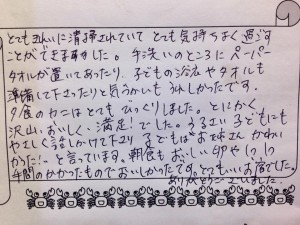 とてもきれいに清掃されていて とても気持ちよく過す
ことができました。手洗いのところにペーパー
タオルが置いてあったり、子どもの浴衣やタオルも
準備して下さったりと気づかいもうれしかったです。
夕食のカニはとてもびっくりしました。とにかく、
沢山、おいしく、満足!でした。うるさい子どもにも
やさしく話しかけて下さり 子どもは"お姉さん かわい
かった!"と言っています。朝食もおいしい卵や1つ1つ
手間のかかったものでおいしかったです。とてもいいお宿でした。
ありがとうございました